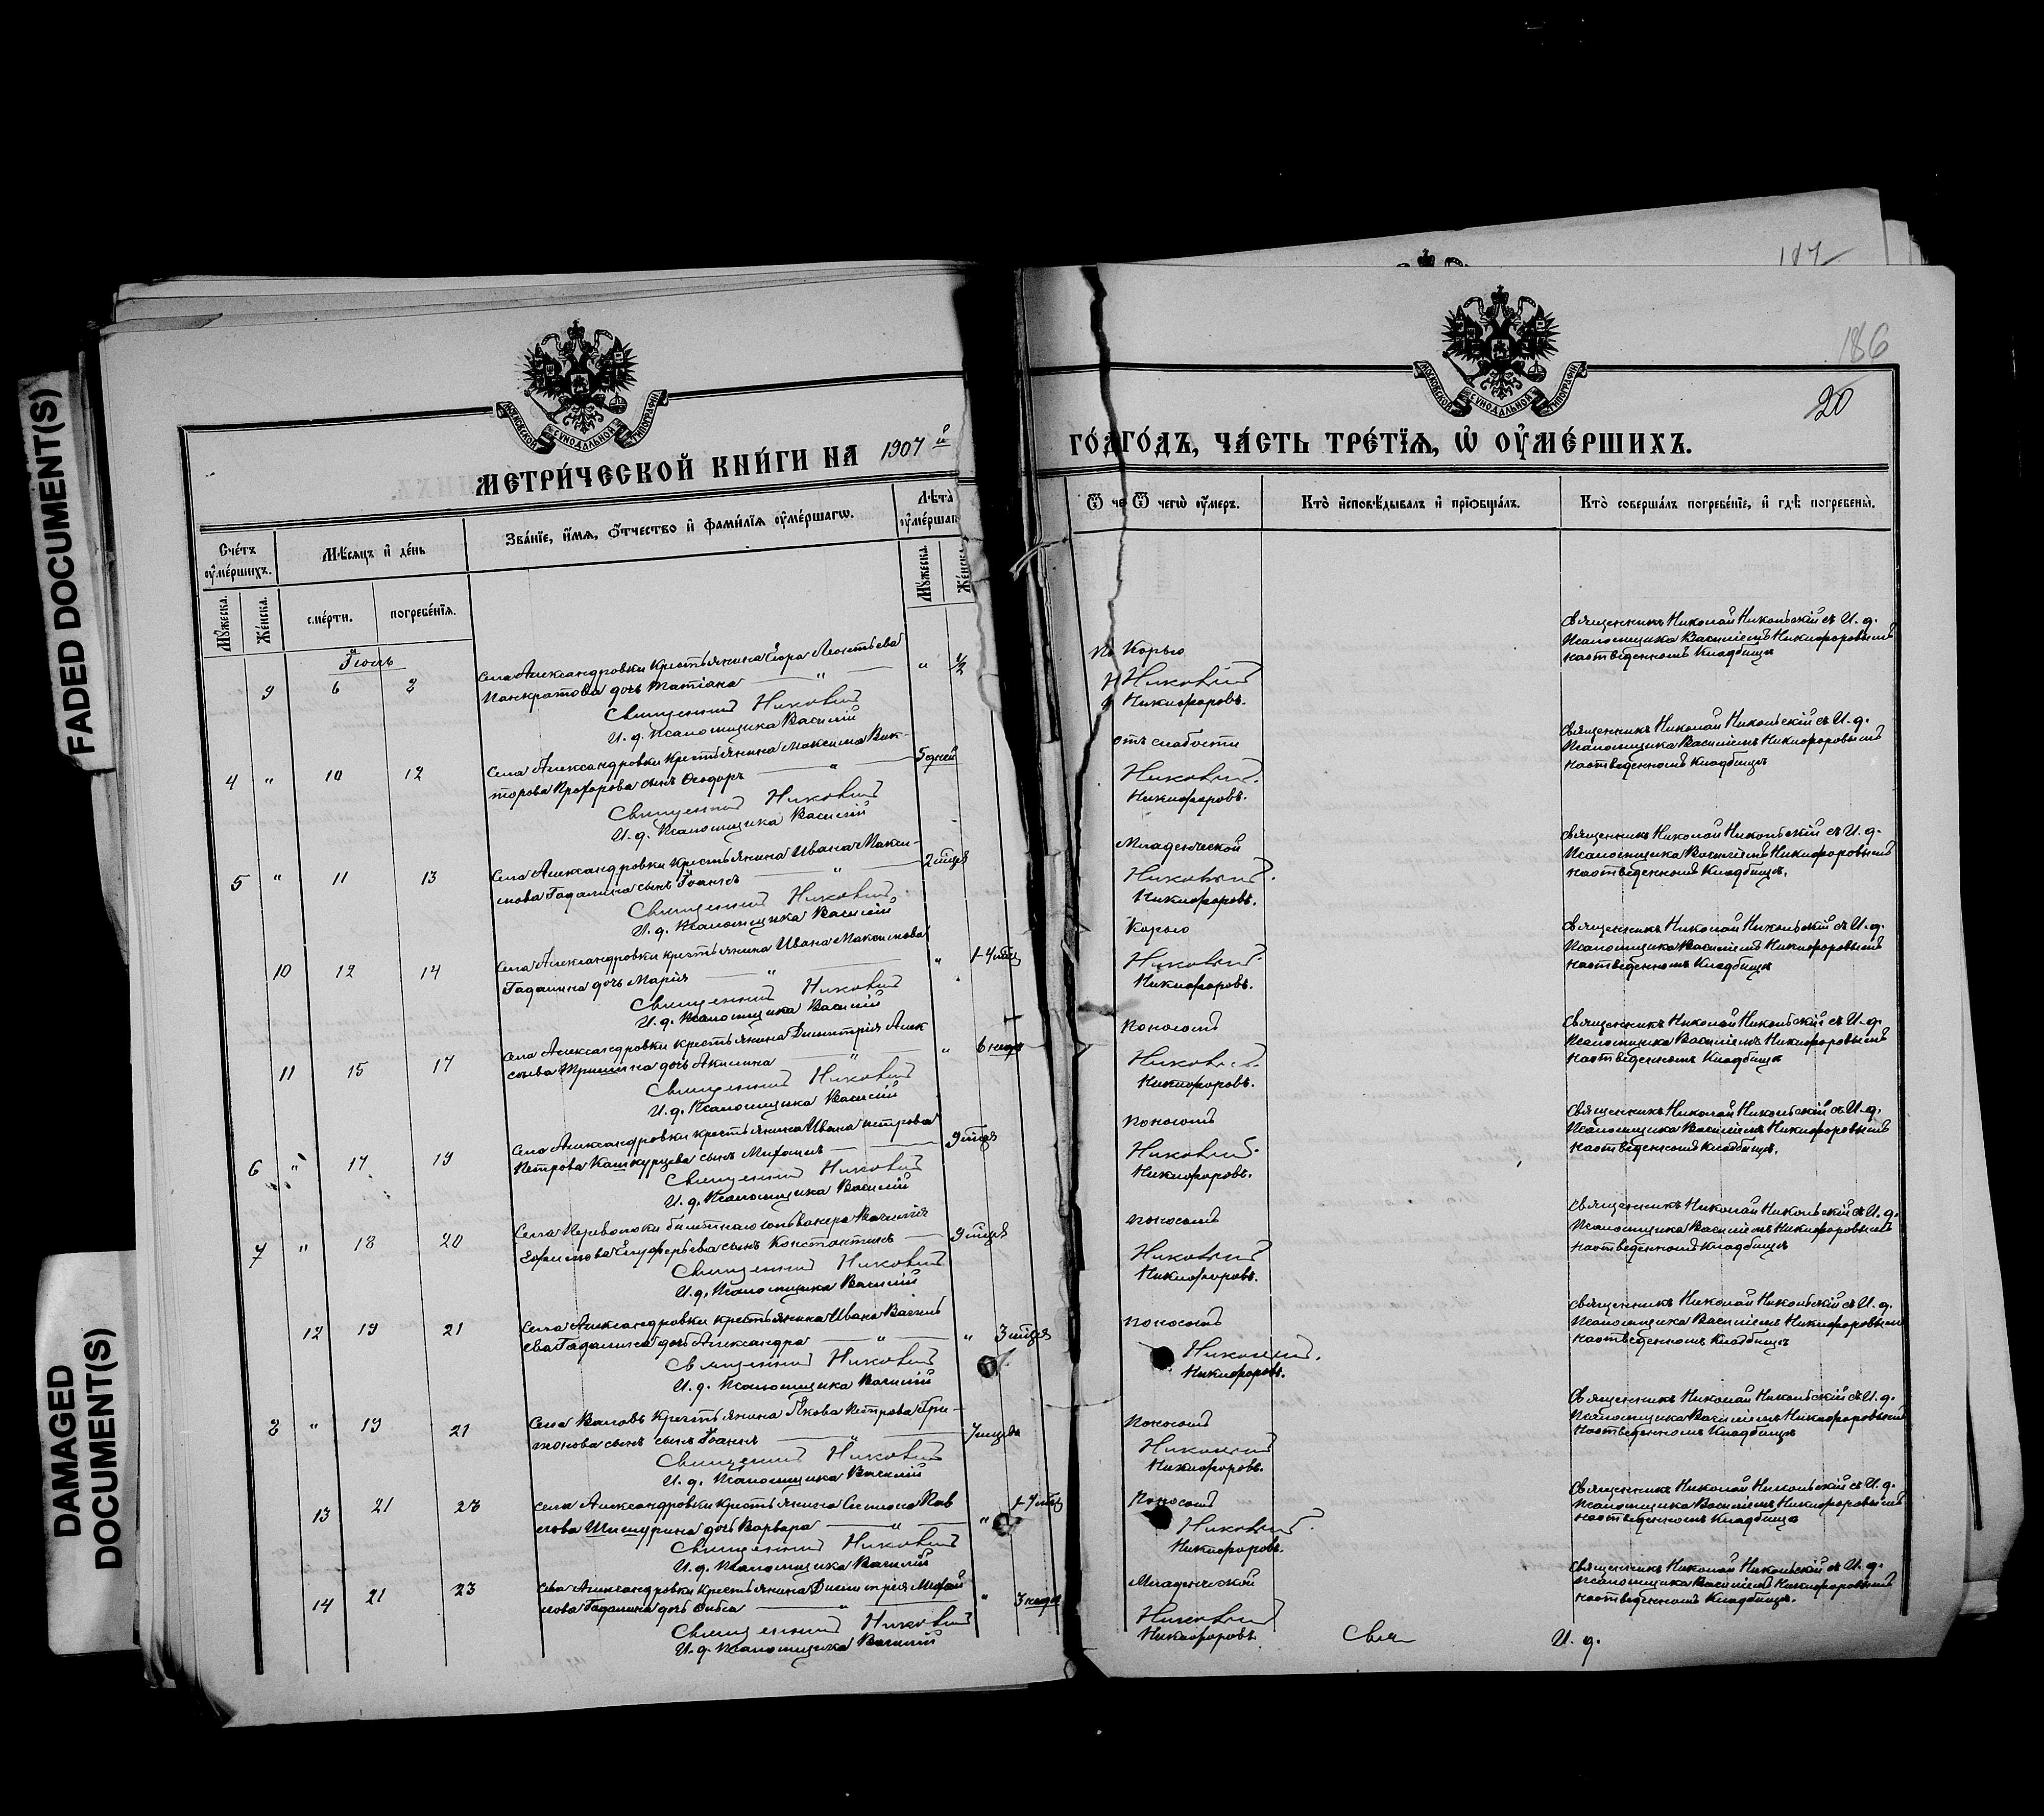 FADED DOCUMENT(S)
DAMAGED
DOCUMENT(S)
186
20
МОСКОВСКОЙ СУНОДАЛЬНОЙ ТИПОГРАФІИ
МОСКОВСКОЙ СУНОДАЛЬНОЙ ТИПОГРАФІИ
МЕТРИ́ЧЕСКОЙ КНИ́ГИ НА 1907 й
ГО́ДЪ, ЧА́СТЬ ТРЕ́ТІѦ, Ѡ ОУМЕ́РШИХЪ.
Сче́тъ оумершихъ.
Мѣсяцъ и де́нь
Зва́ніе, и́мѧ, ѻтчество и фами́лїѧ оумершагѡ.
Лѣта
Ѿ чегѡ оумеръ.
Кто̀ исповѣдывалъ и пріобщалъ.
Кто̀ совершалъ погребеніе, и гдѣ погребены.
Мужеска.
Женска.
смерти.
погребенїѧ.
Мужеска.
Женска
Іюль
9 6 8 села Александровки крестьянина Егора Леонтьева " ½ Корью Священникъ Николай Никольскій съ И. д.
Панкратова дочь Татіана " Псаломщика Василіемъ Никифоровымъ
на отведенномъ Кладбищѣ
Священникъ Никольскій
И. д. Псаломщика Василій Никифоровъ.
4 " 10 12 села Александровки крестьянина Максима Вик- 5 дней отъ слабости Священникъ Николай Никольскій съ И. д.
торова Прохорова сынъ Ѳеодоръ " Псаломщика Василіемъ Никифоровымъ
на отведенномъ Кладбищѣ
Священникъ Никольскій.
И. д. Псаломщика Василій Никифоровъ.
5 " 11 13 села Александровки крестьянина Ивана Макси- 2 мѣця Младенческой Священникъ Николай Никольскій съ И. д.
мова Гадалина сынъ Іоаннъ " Псаломщика Василіемъ Никифоровымъ
на отведенномъ Кладбищѣ.
Священникъ Никольскій.
И. д. Псаломщика Василій Никифоровъ.
10 12 14 села Александровки крестьянина Ивана Максимова " 1-4 мѣц Корью Священникъ Николай Никольскій съ И. д.
Гадалина дочь Марія " Псаломщика Василіемъ Никифоровымъ
на отведенномъ Кладбищѣ
Священникъ Никольскій.
И. д. Псаломщика Василій Никифоровъ.
11 15 17 села Александровки крестьянина Димитрія Алек " 6 недѣ Поносомъ Священникъ Николай Никольскій съ И. д.
сѣева Тришина дочь Акилина " Псаломщика Василіемъ Никифоровымъ
на отведенномъ Кладбищѣ
Священникъ Никольскій.
И. д. Псаломщика Василій Никифоровъ.
6 " 17 19 села Александровки крестьянина Ивана петрова 9 мѣця Поносомъ Священникъ Николай Никольскій съ И. д.
Петрова Кашкурцева сынъ Михаилъ Псаломщика Василіемъ Никифоровымъ
на отведенномъ Кладбищѣ.
Священникъ Никольскій.
И. д. Псаломщика Василій Никифоровъ.
7 " 18 20 Села Переволоки Василія 9 мѣця поносомъ Священникъ Николай Никольскій съ И. д.
Ефимова Елуферьева сынъ Константинъ Псаломщика Василіемъ Никифоровымъ
на отведенномъ Кладбищѣ
Священникъ Никольскій
И. д. Псаломщика Василій Никифоровъ.
12 19 21 села Александровки крестьянина Ивана Василь " 3 мѣця поносомъ Священникъ Николай Никольскій съ И. д.
ева Гадалина дочь Александра " Псаломщика Василіемъ Никифоровымъ
на отведенномъ Кладбищѣ
Священникъ Никольскій.
И. д. Псаломщика Василій Никифоровъ.
8 " 19 21 Села крестьянина Якова Петрова 7 мѣцевъ Поносомъ Священникъ Николай Никольскій съ И. д.
сынъ сынъ Іоаннъ " Псаломщика Василіемъ Никифоровымъ
на отведенномъ Кладбищѣ
Священникъ Никольскій
И. д. Псаломщика Василій Никифоровъ.
13 21 23 села Александровки крестьянина Симеона Пав " Поносомъ Священникъ Николай Никольскій съ И. д.
лова Шишурина дочь Варвара " Псаломщика Василіемъ Никифоровымъ
на отведенномъ Кладбищѣ
Священникъ Никольскій.
И. д. Псаломщика Василій Никифоровъ.
14 21 23 села Александровки крестьянина Димитрія Михай " 3 недѣ Младенческой Священникъ Николай Никольскій съ И. д.
лова Гадалина дочь " Псаломщика Василіемъ Никифоровымъ
на отведенномъ Кладбищѣ.
Священникъ Никольскій
И. д. Псаломщика Василій Никифоровъ. Свящ И. д.